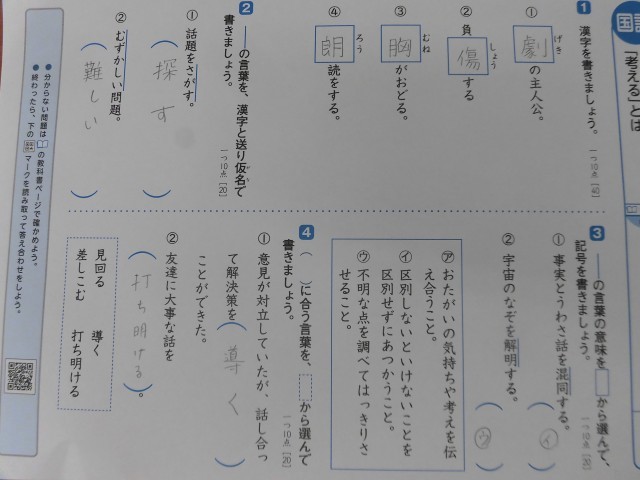 国語
「考える」とは
1 漢字を書きましょう。 一つ10点【40】
① 劇の主人公。
げき
② 負傷する
しょう
③ 胸がおどる。
むね
④ 朗読をする。
ろう
2 ――の言葉を、漢字と送り仮名で書きましょう。 一つ10点【20】
① 話題をさがす。
(探す)
② むずかしい問題。
(難しい)
3 ――の言葉の意味を□から選んで、記号を書きましょう。 一つ10点【20】
① 事実とうわさ話を混同する。
(イ)
② 宇宙のなぞを解明する。
(ウ)
ア おたがいの気持ちや考えを伝え合うこと。
イ 区別しないといけないことを区別せずにあつかうこと。
ウ 不明な点を調べてはっきりさせること。
4 ( )に合う言葉を、□から選んで書きましょう。 一つ10点【20】
① 意見が対立していたが、話し合って解決策を(導く)ことができた。
② 友達に大事な話を(打ち明ける)。
見回る 導く
差しこむ 打ち明ける
●分からない問題は、の教科書ページで確かめよう。
●終わったら、下のマークを読み取って答え合わせをしよう。